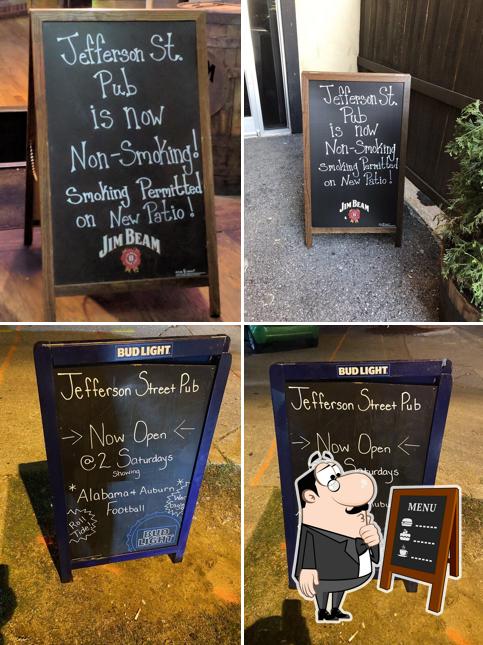 Jefferson St.
Pub
is now
Non-Smoking!
Smoking Permitted
on New Patio!
JIM BEAM
Jefferson St.
Pub
is now
Non-Smoking!
Smoking Permitted
on New Patio!
JIM BEAM
BUD LIGHT
Jefferson Street Pub
Now Open
@ 2 Saturdays
Showing
*Alabama & Auburn*
Football
Roll
Tide!
War
Eagle
BUD
LIGHT
BUD LIGHT
Jefferson Street Pub
Now Open
Saturdays
MENU